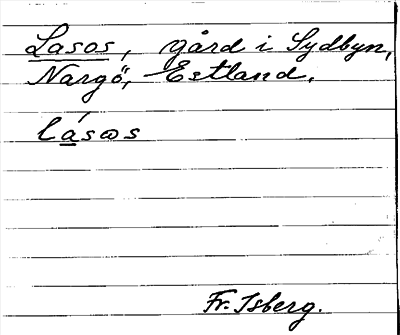 Lasos, gård i Sydbyn,
Nargö, Estland.
lá̲sωs
Fr. Isberg.